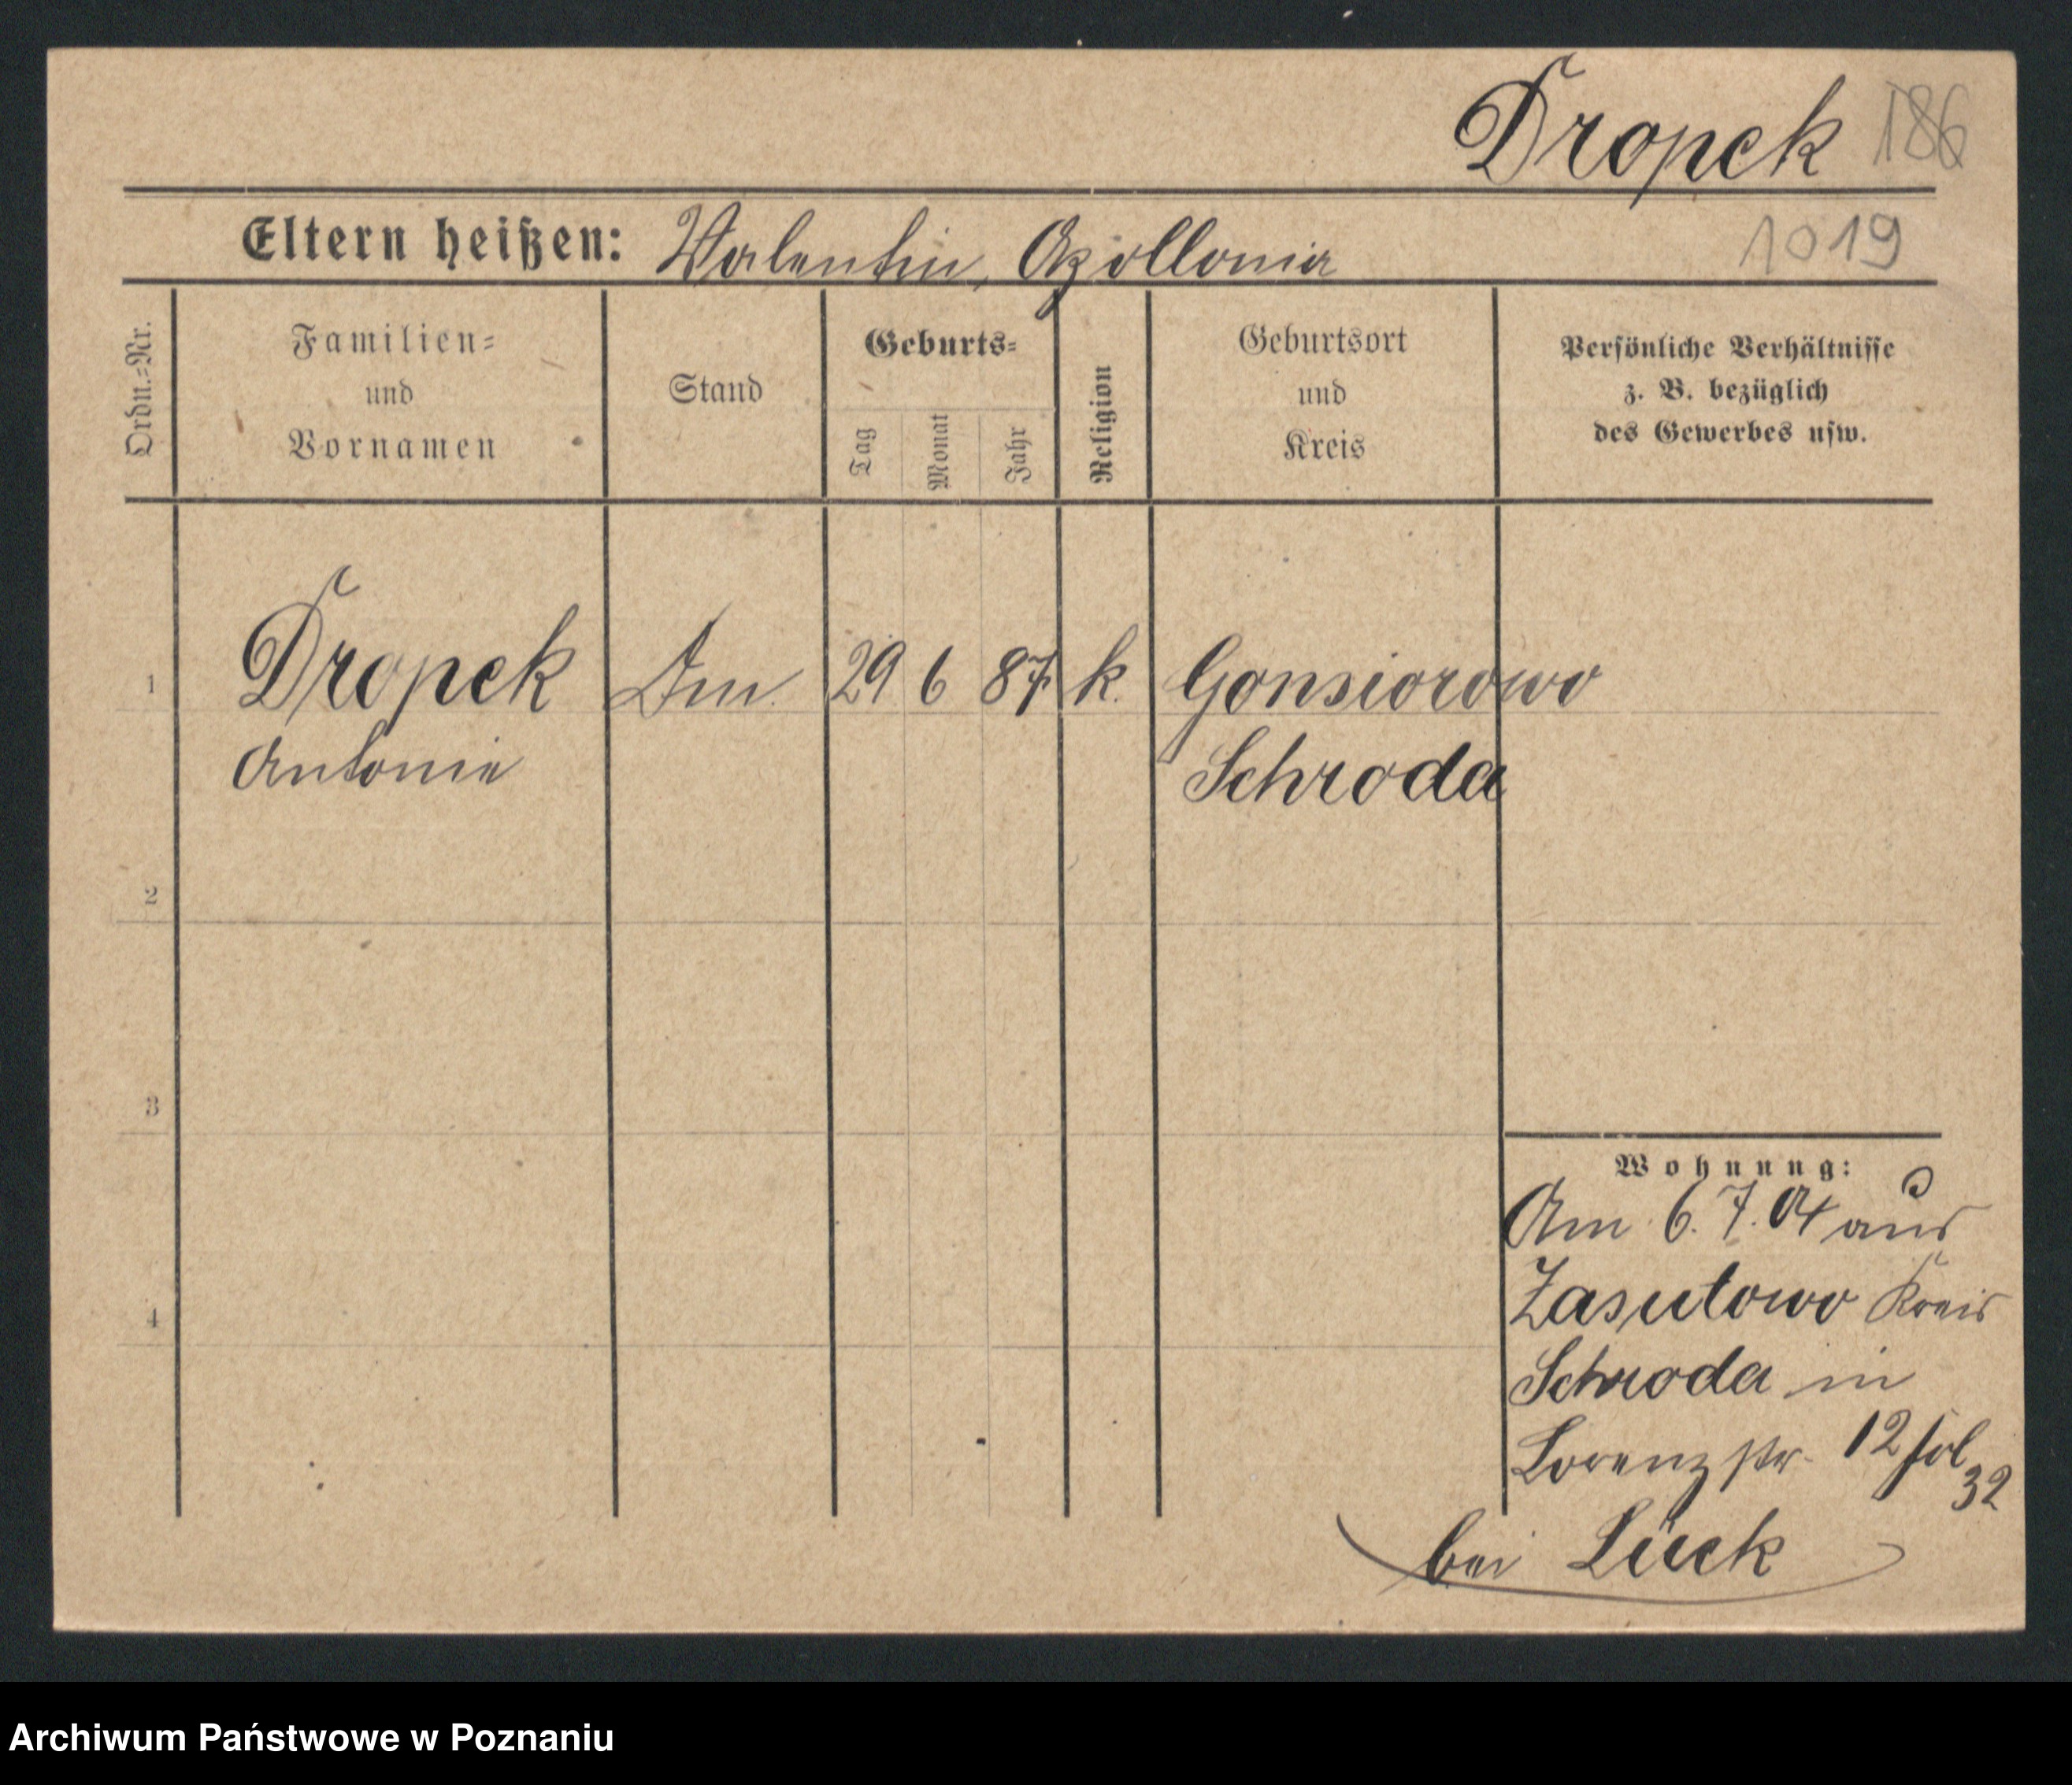 Dropek 186
1019
Eltern heißen: Valentin, Apollonia
Ordn.=Nr.
Familien=
und
Vornamen
Stand
Geburts=
Tag
Monat
Jahr
Religion
Geburtsort
und
Kreis
Persönliche Verhältnisse
z. B. bezüglich
des Gewerbes usw.
1 Dropek 29 6 87 k. Gonsiorowo
Antonie Schroda
2
3
4
Wohnung:
Am 6. 7. 04 aus
Zasutowo Kreis
Schroda in
Lorenzstr. 12 fol
32
bei Lück
Archiwum Państwowe w Poznaniu